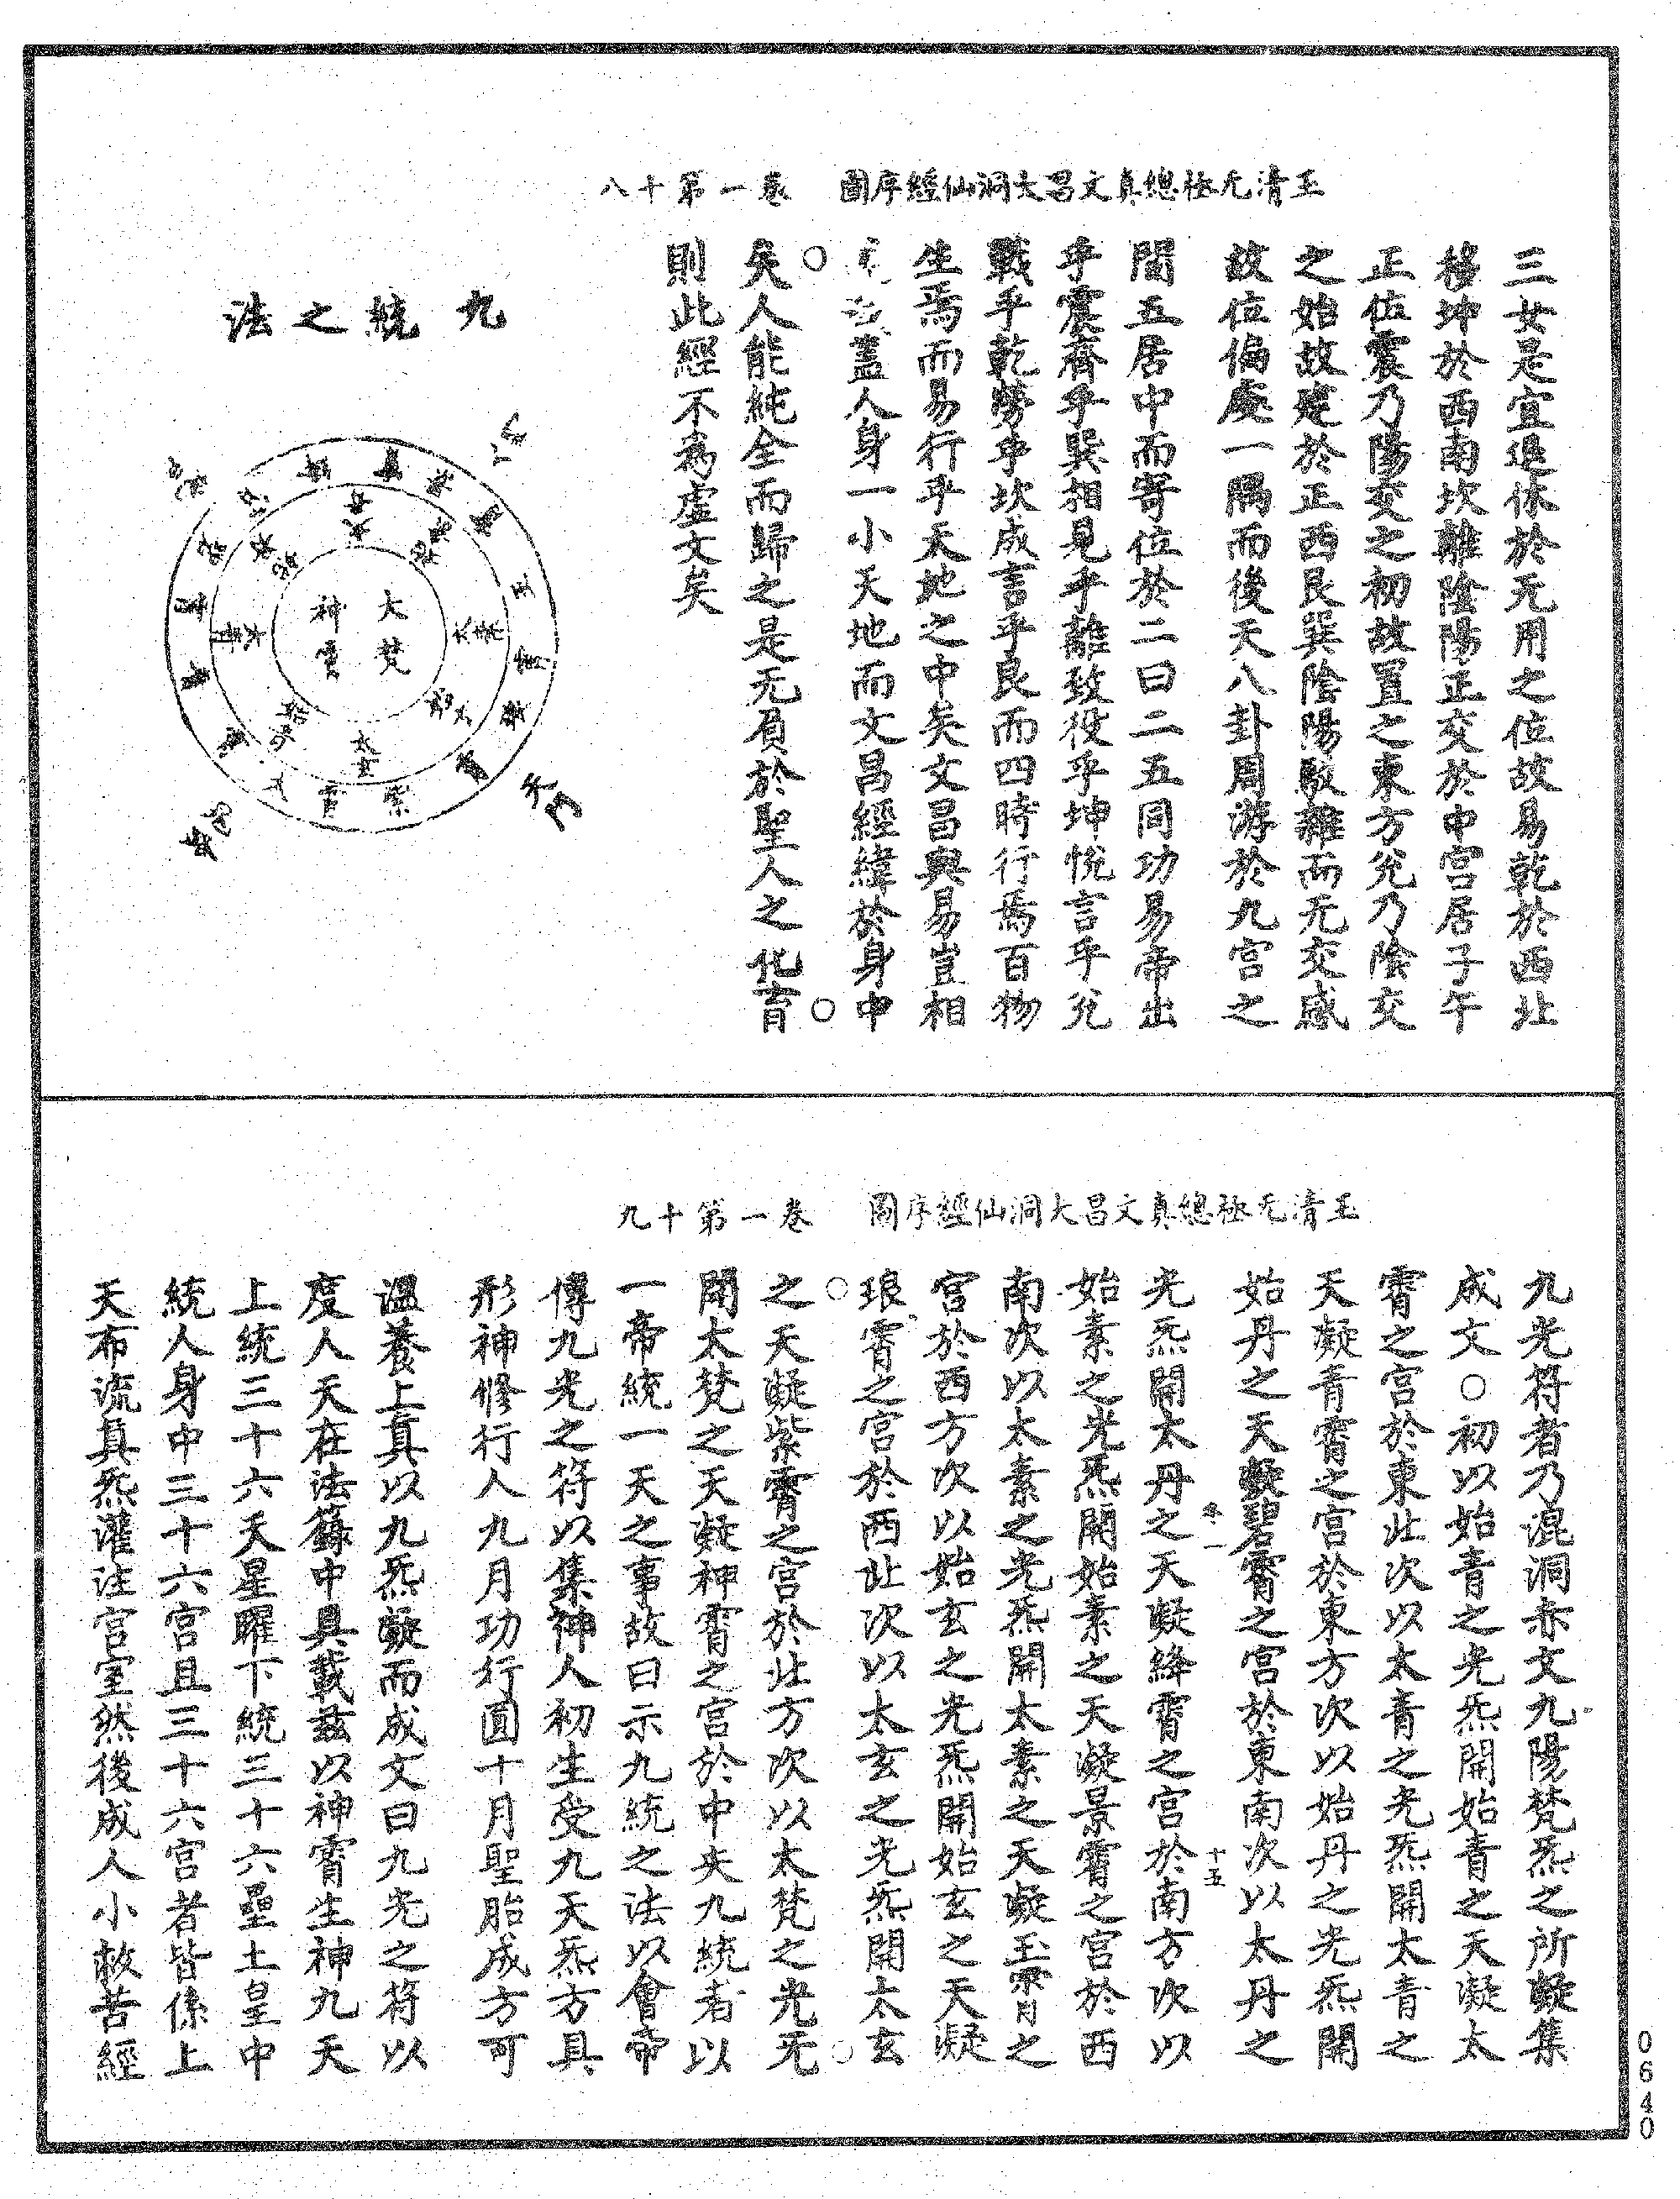 玉清无極總真文昌大洞仙經序圖 卷一第十八
三女是宜退休於无用之位故易乾於西北
移坤於西南坎離陰陽正交於中宮居子午
正位震乃陽交之初故置之東方兌乃陰交
之始故建於正西艮巽陰陽駁雜而无交感
故位偏處一隅而後天八卦周游於九宮之
間五居中而寄位於二曰二五同功易帝出
乎震齊乎巽相見乎離致役乎坤悅言乎兌
戰乎乾勞乎坎成言乎艮而四時行焉百物
生焉而易行乎天地之中矣文昌與易豈相
蓋人身一小天地而文昌經緯於身中
○矣人能純全而歸之是无負於聖人之化育○
則此經不為虛文矣
九統之法
大梵
神霄
太玄
紫
霄
天門
玉清无極總真文昌大洞仙經序圖 卷一第十九
九光符者乃混洞赤文九陽梵炁之所凝集
成文○初以始青之光炁開始青之天凝太
霄之宮於東北次以太青之光炁開太青之
天凝青霄之宮於東方次以始丹之光炁開
始丹之天凝碧霄之宮於東南次以太丹之
光炁開太丹之天凝絳霄之宮於南方次以
卷一
十五
始素之光炁開始素之天凝景霄之宮於西
南次以太素之光炁開太素之天凝玉霄之
宮於西方次以始玄之光炁開始玄之天凝
琅霄之宮於西北次以太玄之光炁開太玄
○之天凝紫霄之宮於北方次以太梵之光炁○
開太梵之天凝神霄之宮於中央九統者以
一帝統一天之事故曰示九統之法以會帝
傳九光之符以集神人初生受九天炁方具
形神修行人九月功行圓十月聖胎成方可
溫養上真以九炁凝而成文曰九光之符以
度人天在法籙中具載茲以神霄生神九天
上統三十六天星曜下統三十六壘土皇中
統人身中三十六宮且三十六宮者皆係上
天布流真炁灌注宮室然後成人小赦苦經
0640